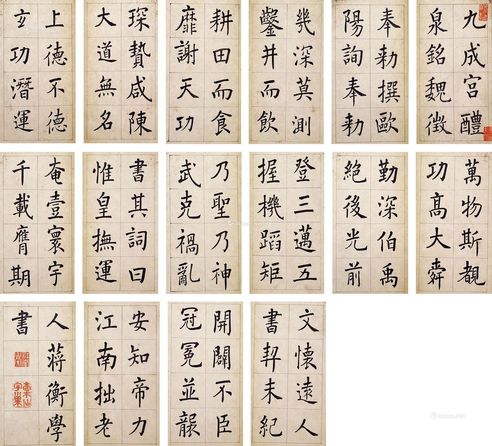 九成宮醴
泉銘魏徵
奉勅撰歐
陽詢奉勅
幾深莫測
鑿井而飲
耕田而食
靡謝天功
琛贄咸陳
大道無名
上德不德
玄功潛運
萬物斯覩
功高大舜
勤深伯禹
絕後光前
登三邁五
握機蹈矩
乃聖乃神
武克禍亂
書其詞曰
惟皇撫運
奄壹寰宇
千載膺期
文懷遠人
書契未紀
開闢不臣
冠冕並襲
安知帝力
江南拙老
人蔣衡學
書